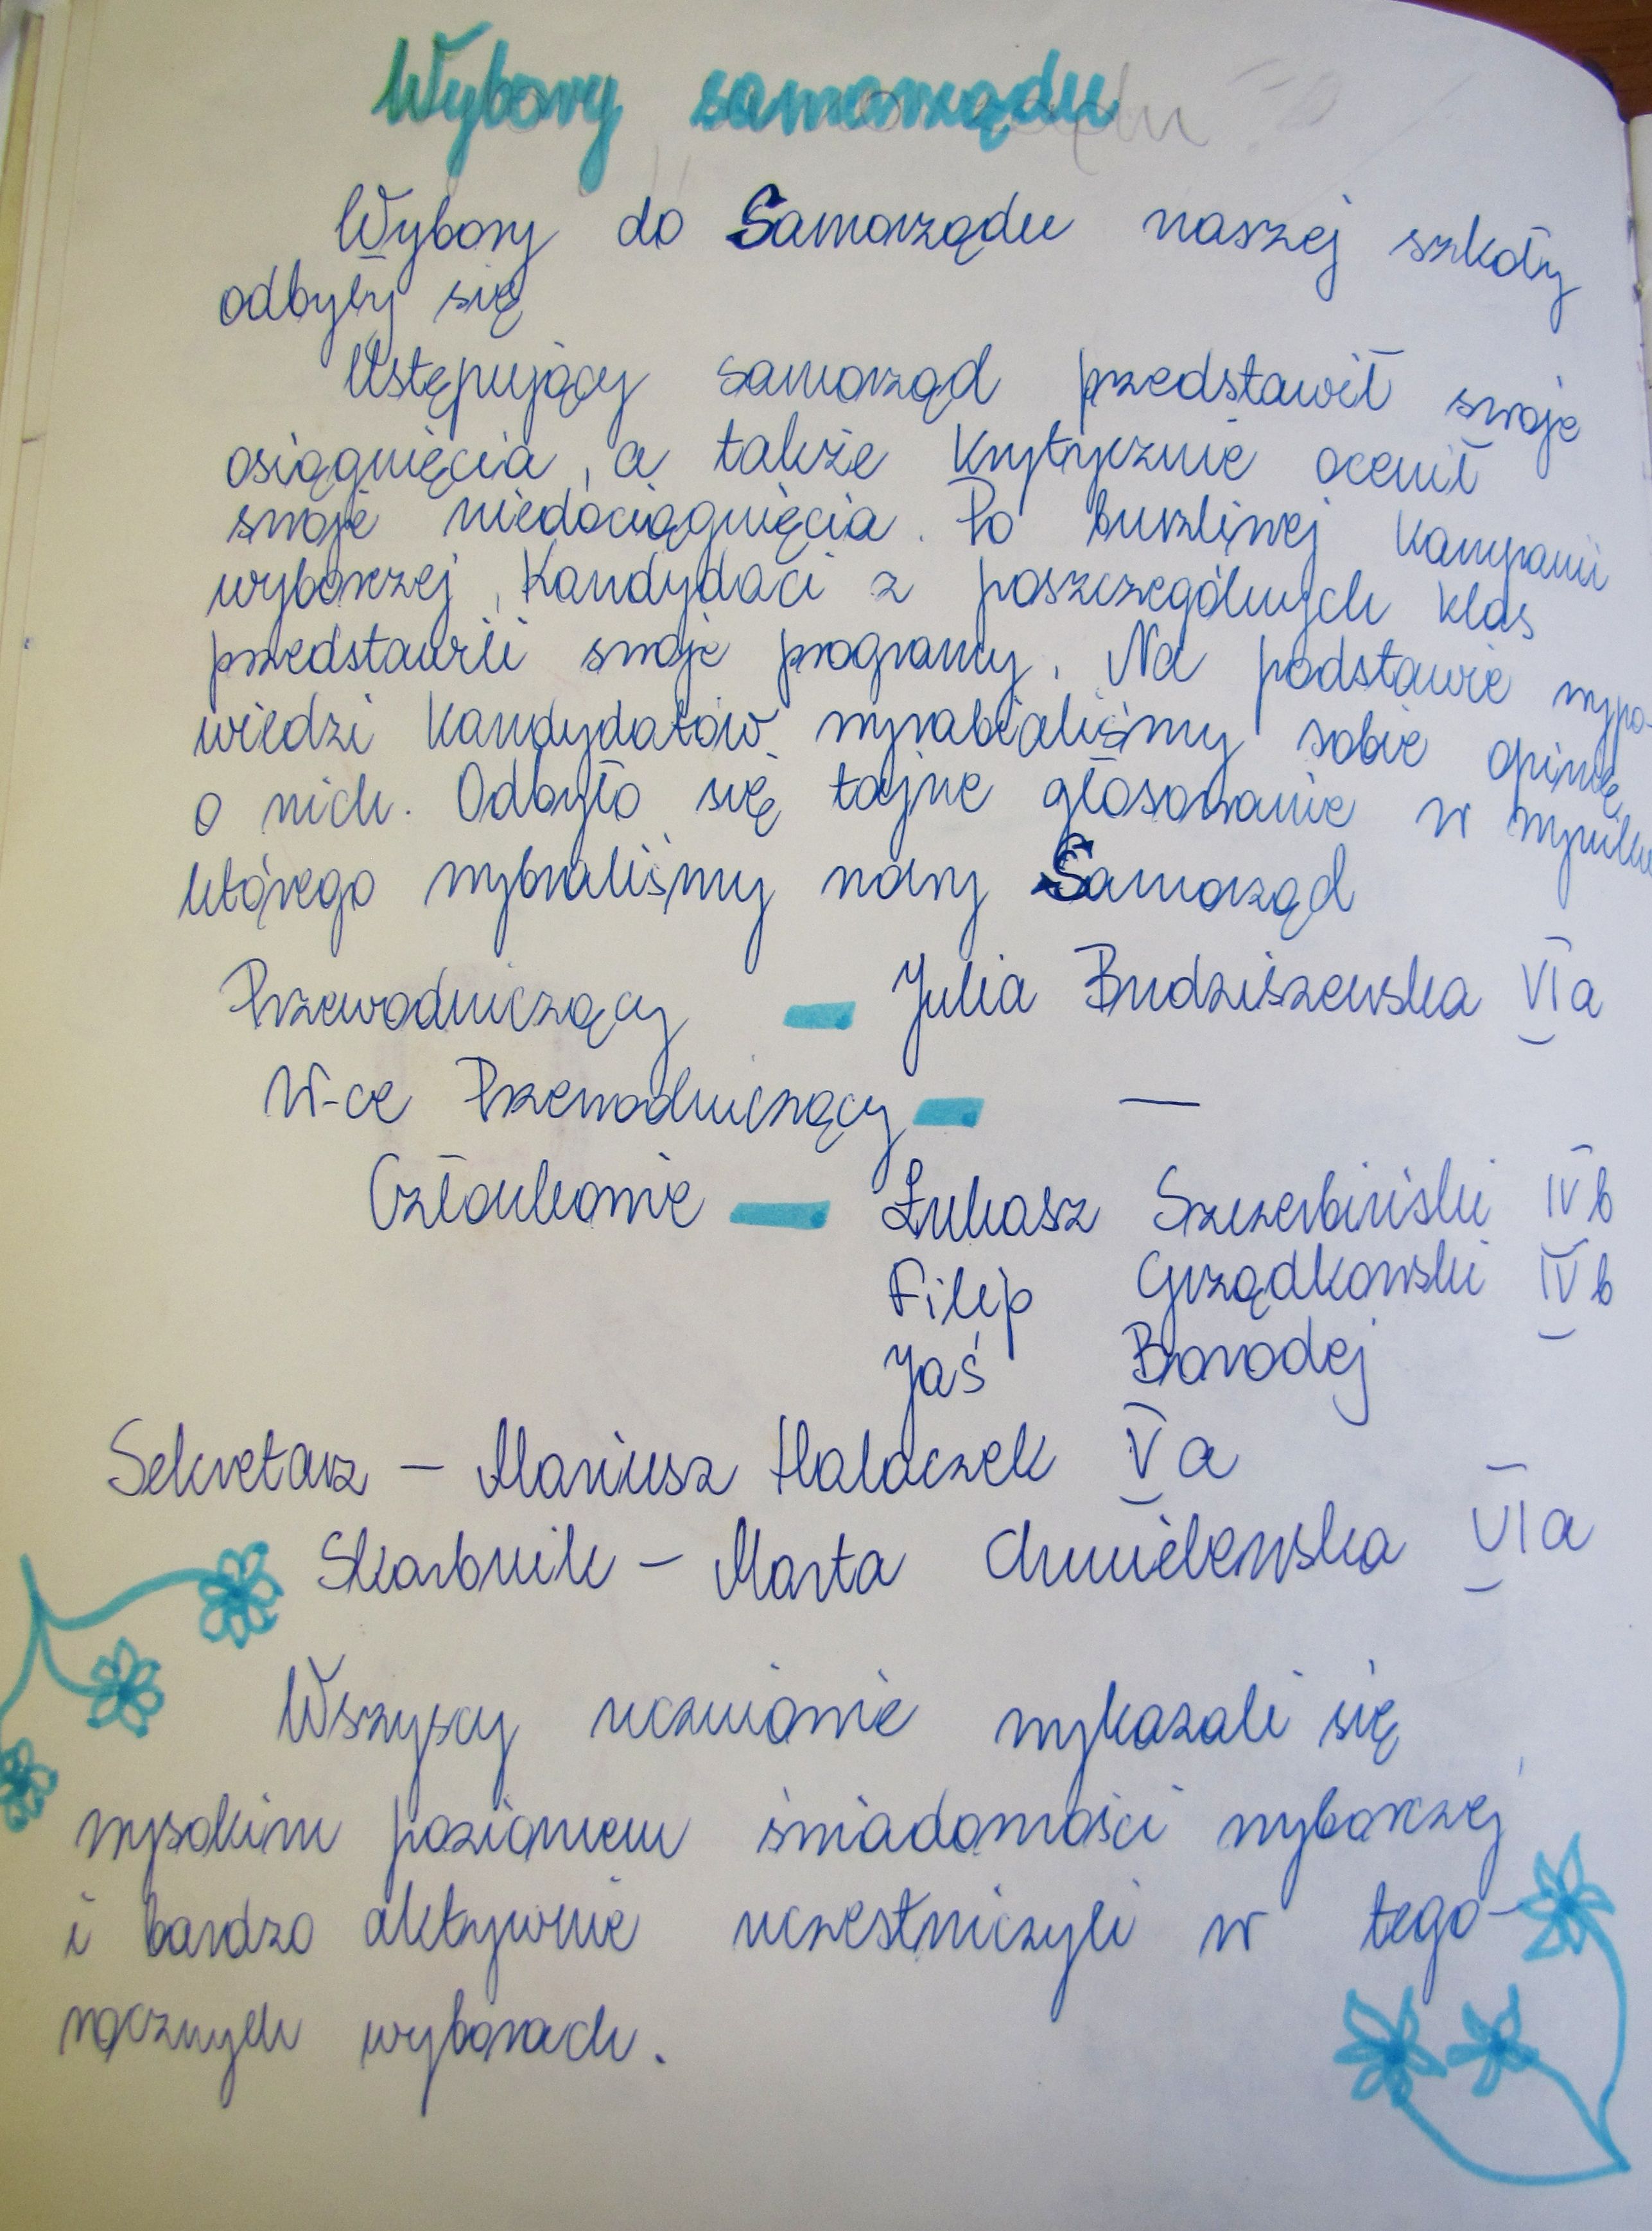 Wybory samorządu
Wybory do Samorządu naszej szkoły
odbyły się
Ustępujący samorząd przedstawił swoje
osiągnięcia, a także krytycznie ocenił
swoje niedociągnięcia. Po burzliwej kampanii
wyborczej, kandydaci z poszczególnych klas
przedstawili swoje programy. Na podstawie wypo-
wiedzi kandydatów wyrabialiśmy sobie opinię
o nich. Odbyło się tajne głosowanie w wyniku
którego wybraliśmy nowy Samorząd
Przewodniczący - Julia Budziszewska VI a
W-ce Przewodniczący - —
Członkowie - Łukasz Szczerbiński IV b
Filip Grządkowski IV b
Jaś Borodej
Sekretarz - Mariusz Halaczek V a
Skarbnik - Marta Chmielewska VI a
Wszyscy uczniowie wykazali się
wysokim poziomem świadomości wyborczej
i bardzo aktywnie uczestniczyli w tego-
rocznych wyborach.